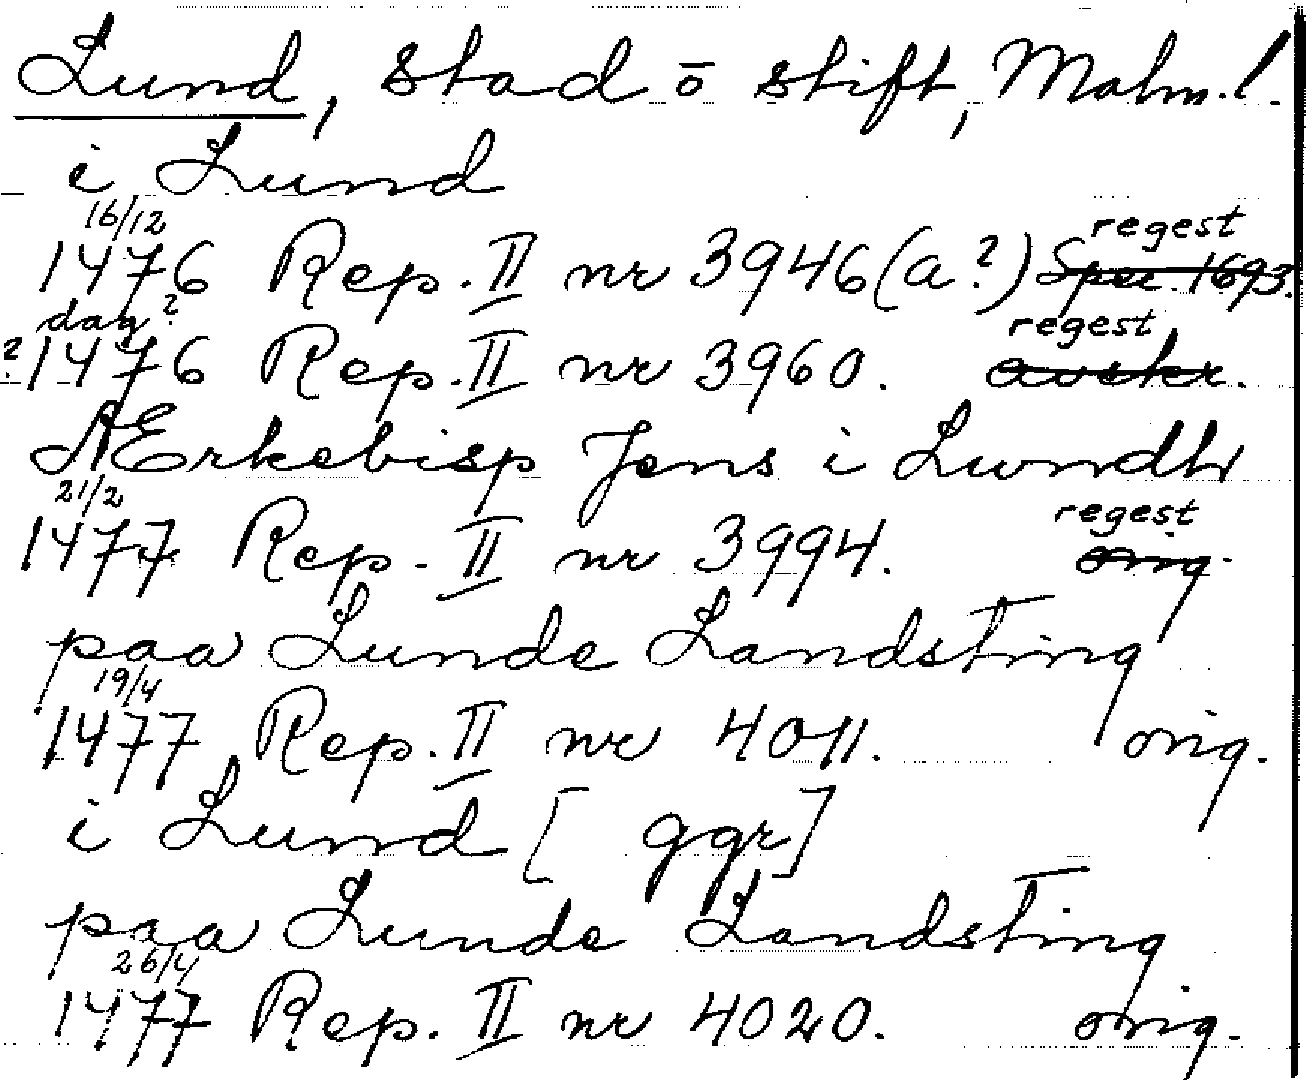 Lund, stad o stift, Malm. l.
i Lund
16/12 regest
1476 Rep. II nr 3946 (a?) Spec. 1693.
dag? regest
?1476 Rep. II nr 3960. avskr.
Ærkebisp Jens i Lundh
21/2 regest
1477 Rep. II nr 3994. orig.
paa Lunde Landsting
19/4
1477 Rep. II nr 4011. orig.
i Lund [ ggr]
paa Lunde Landsting
26/4
1477 Rep. II nr 4020. orig.